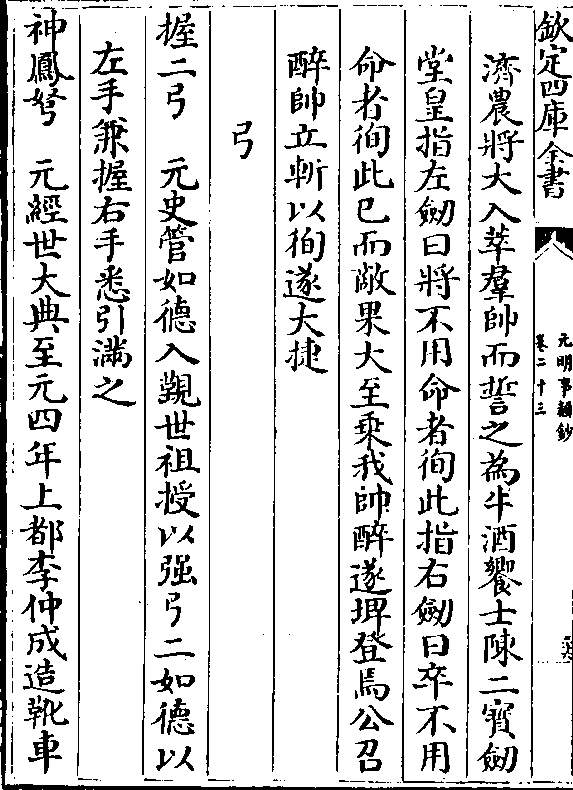 欽定四庫全書
元明事類鈔
卷二十三
濟農將大入萃羣帥而誓之為牛酒饗士陳二寳劒
堂皇指左劒曰將不用命者徇此指右劒曰卒不用
命者徇此已而敵果大至乘我帥醉遂埤登焉公召
醉帥立斬以徇遂大捷
弓
握二弓　元史管如德入覲世祖授以强弓二如德以
左手兼握右手悉引滿之
神鳳弩　元經世大典至元四年上都李仲成造靴車